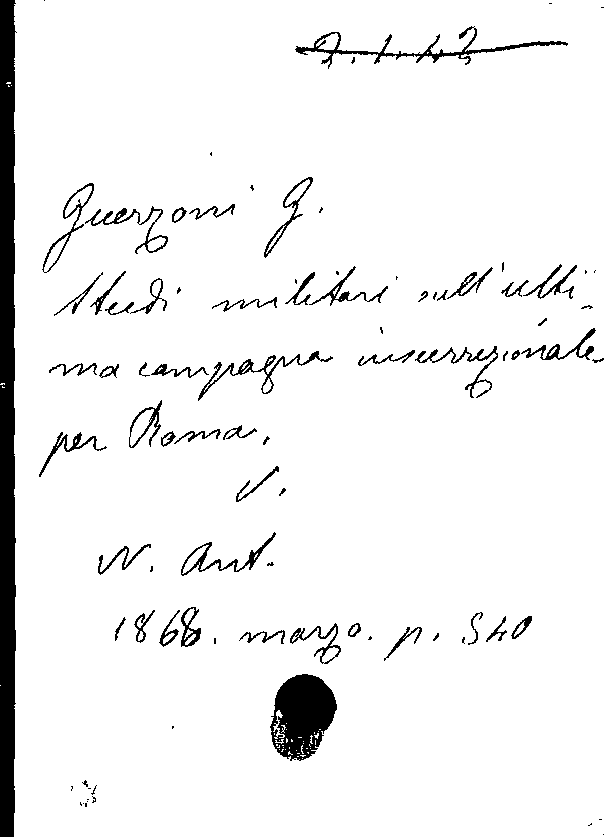 2.1.43
Guerzoni G.
Studi militari sull'ulti-
ma campagna insurrezionale
per Roma.
V.
N. Ant.
1868. marzo. p. 540